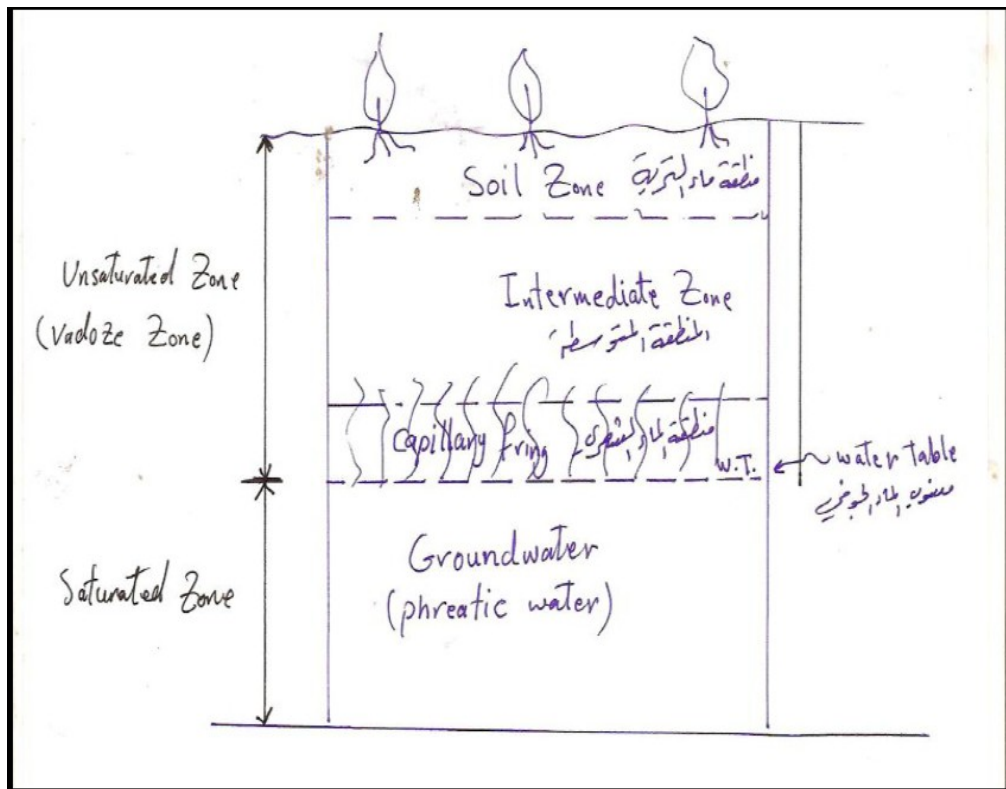 Soil Zone منطقة ماء التربة
Unsaturated Zone
(Vadoze Zone)
Intermediate Zone
المنطقة المتوسطة
Capillary fring منطقة الماء الشعري
W.T.
water table
منسوب الماء الجوفي
Groundwater
(phreatic water)
Saturated Zone